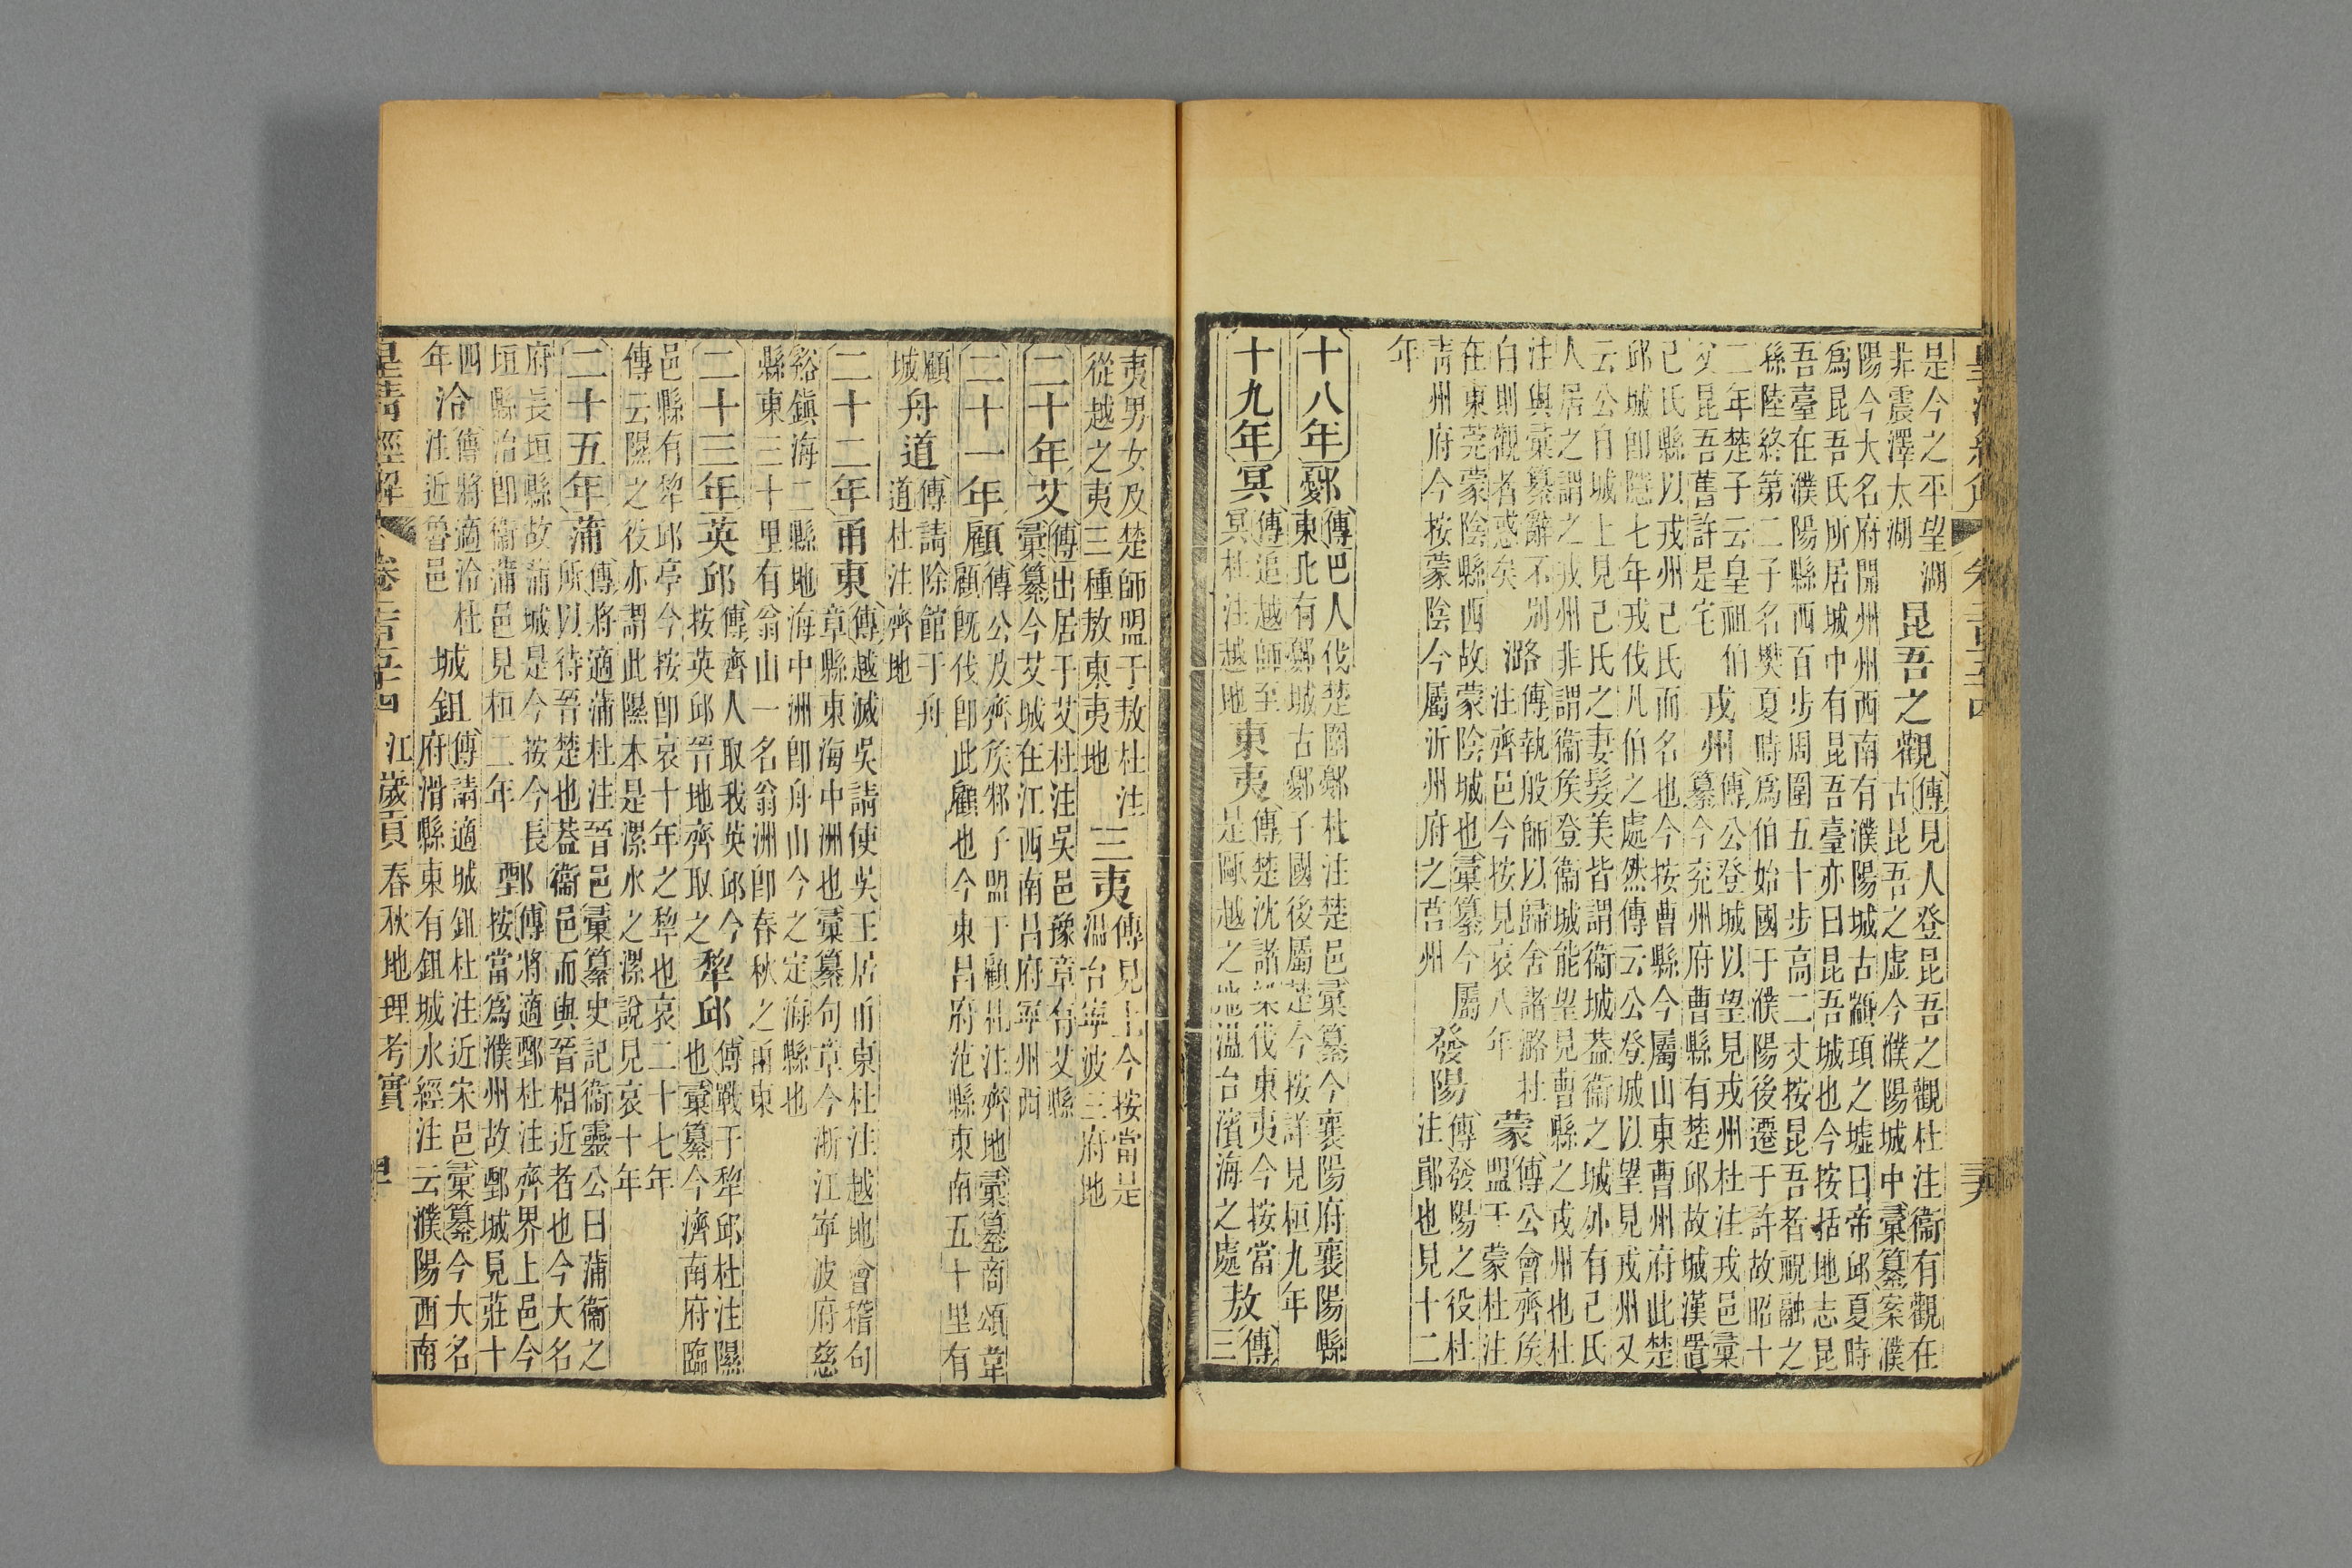 是今之平望湖
非震澤太湖
昆吾之觀
傳見人登昆吾之觀杜注衞有觀在
古昆吾之虛今濮陽城中彙纂案濮
陽今大名府開州州西南有濮陽城古顓頊之墟曰帝邱夏時
爲昆吾氏所居城中有昆吾臺亦曰昆吾城也今按括地志昆
吾臺在濮陽縣西百步周圍五十步高二丈按昆吾者祝融之
孫陸終第二子名樊夏時爲伯始國于濮陽後遷于許故昭十
二年楚子云皇祖伯
父昆吾舊許是宅
戎州
傳公登城以望見戎州杜注戎邑彙
纂今兖州府曹縣有楚邱故城漢置
己氏縣以戎州己氏而名也今按曹縣今屬山東曹州府此楚
邱城卽隱七年戎伐凡伯之處然傳云公登城以望見戎州又
云公自城上見己氏之妻髮美皆謂衞城葢衞之城外有己氏
人居之謂之戎州非謂衞矦登衞城能望見曹縣之戎州也杜
注與彙纂辭不別
白則觀者惑矣
潞
傳執般師以歸舍諸潞杜
注齊邑今按見哀八年
蒙
傳公會齊矦
盟于蒙杜注
在東莞蒙陰縣西故蒙陰城也彙纂今屬
靑州府今按蒙陰今屬沂州府之莒州
發陽
傳發陽之役杜
注鄖也見十二
年
十八年
鄾
傳巴人伐楚圍鄾杜注楚邑彙纂今襄陽府襄陽縣
東北有鄾城古鄾子國後屬楚今按詳見桓九年
十九年
冥
傳追越師至
冥杜注越地
東夷
傳楚沈諸梁伐東夷今按當
是甌越之地温台濱海之處
敖
傳
三
夷男女及楚師盟于敖杜注
從越之夷三種敖東夷地
三夷
傳見上今按當是
温台寧波三府地
二十年
艾
傳出居于艾杜注吳邑豫章有艾縣
彙纂今艾城在江西南昌府寧州西
二十一年
顧
傳公及齊矦邾子盟于顧杜注齊地彙纂商頌韋
顧旣伐卽此顧也今東昌府范縣東南五十里有
顧
城
舟道
傳請除館于舟
道杜注齊地
二十二年
甬東
傳越滅吳請使吳王居甬東杜注越地會稽句
章縣東海中洲也彙纂句章今浙江寧波府慈
谿鎭海二縣地海中洲卽舟山今之定海縣也
縣東三十里有翁山一名翁洲卽春秋之甬東
二十三年
英邱
傳齊人取我英邱今
按英邱晉地齊取之
犂邱
傳戰于犂邱杜注隰
也彙纂今濟南府臨
邑縣有犂邱亭今按卽哀十年之犂也哀二十七年
傳云隰之役亦謂此隰本是漯水之漯說見哀十年
二十五年
蒲
傳將適蒲杜注晉邑彙纂史記衞靈公曰蒲衞之
所以待晉楚也葢衞邑而與晉相近者也今大名
府長垣縣故蒲城是今按今長
垣縣治卽衞蒲邑見桓二年
鄄
傳將適鄄杜注齊界上邑今
按當爲濮州故鄄城見莊十
四
年
泠
傳將適泠杜
注近魯邑
城鉏
傳請適城鉏杜注近宋邑彙纂今大名
府滑縣東有鉏城水經注云濮陽西南
皇淸經解
卷二百五十四
江歲貢春秋地理考實